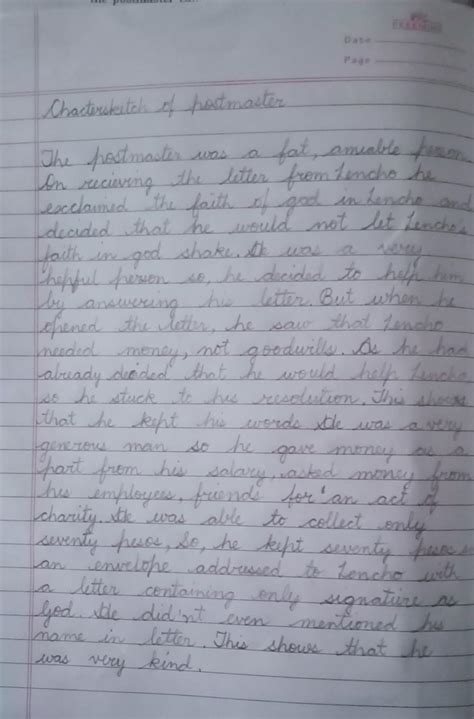 Date
Page
Chactersketch of postmaster
The postmaster was a fat, amiable person
On reciving the letter from Lencho he
exclaimed the faith of god in Lencho and
decided that he would not let Lencho's
faith in god shake. He was a very
helpful person so, he decided to help him
by answering his letter. But when he
opened the letter, he saw that Lencho
needed money, not goodwills. As he had
already decided that he would help Lencho
so he stuck to his resolution. This shows
that he kept his words. He was a very
generous man so he gave money as a
part from his salary, asked money from
his employees, friends for an act of
charity. He was able to collect only
seventy pesos, So, he kept seventy pesos
an envelope addressed to Lencho with
a letter containing only signature as
God. He did'nt even mentioned his
name in letter. This shows that he
was very kind.